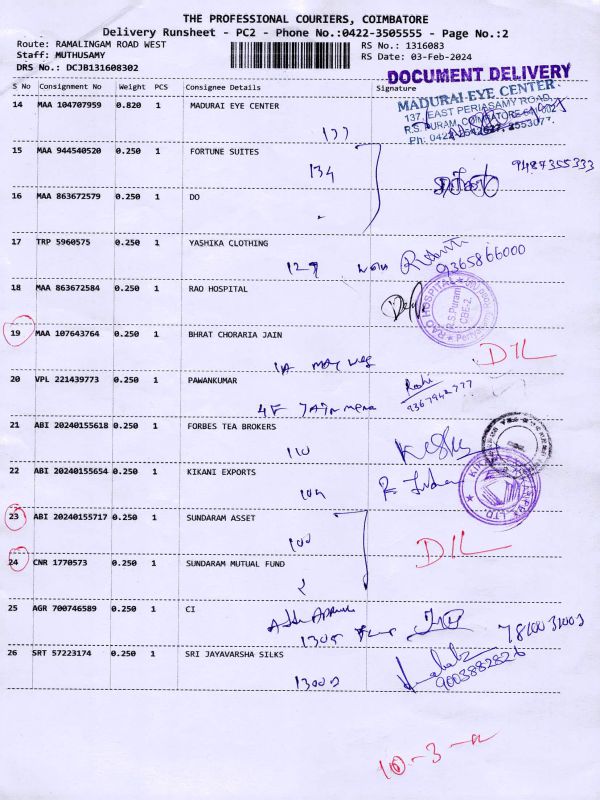 THE PROFESSIONAL COURIERS, COIMBATORE
Delivery Runsheet - PC2 - Phone No.:0422-3505555 - Page No.:2
Route: RAMALINGAM ROAD WEST
Staff: MUTHUSAMY
DRS No.: DCJB131608302
RS No.: 1316083
RS Date: 03-Feb-2024
DOCUMENT DELIVERY
S No Consignment No Weight PCS Consignee Details Signature
14 MAA 104707959 0.820 1 MADURAI EYE CENTER
MADURAI EYE CENTER
137, EAST PERIASAMY ROAD,
R.S. PURAM, COIMBATORE
137
15 MAA 944540520 0.250 1 FORTUNE SUITES
134
9487355333
16 MAA 863672579 0.250 1 DO
17 TRP 5960575 0.250 1 YASHIKA CLOTHING
127
9365866000
18 MAA 863672584 0.250 1 RAO HOSPITAL
RAO HOSPITAL
R.S.Puram
CBE-2.
19 MAA 107643764 0.250 1 BHRAT CHORARIA JAIN
DIL
20 VPL 221439773 0.250 1 PAWANKUMAR
9367942777
4F
21 ABI 20240155618 0.250 1 FORBES TEA BROKERS
110
22 ABI 20240155654 0.250 1 KIKANI EXPORTS
23 ABI 20240155717 0.250 1 SUNDARAM ASSET
100
DIL
24 CNR 1770573 0.250 1 SUNDARAM MUTUAL FUND
25 AGR 700746589 0.250 1 CI
1305
7810031003
26 SRT 57223174 0.250 1 SRI JAYAVARSHA SILKS
9003882826